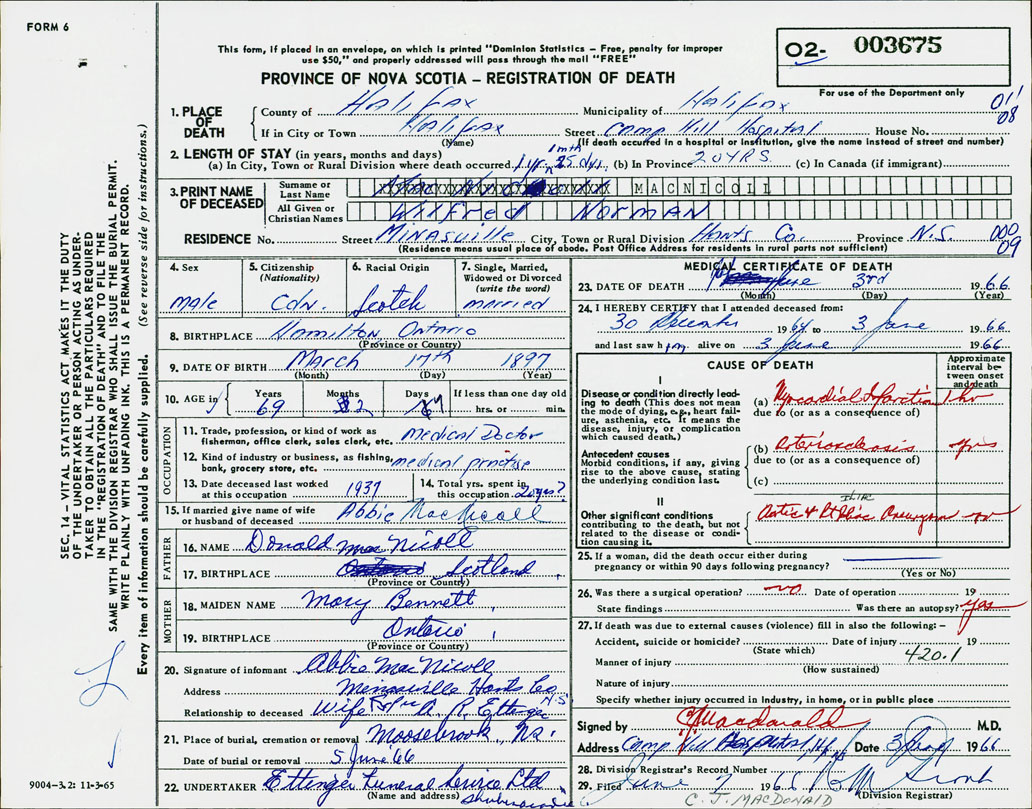 FORM 6
This form, if placed in an envelope, on which is printed "Dominion Statistics – Free, penalty for improper
use $50," and properly addressed will pass through the mail "FREE"
PROVINCE OF NOVA SCOTIA – REGISTRATION OF DEATH
02- 003675
For use of the Department only
1. PLACE OF DEATH
County of Halifax Municipality of Halifax 011
08
If in City or Town Halifax Street Camp Hill Hospital House No.
(Name) (If death occurred in a hospital or institution, give the name instead of street and number)
2. LENGTH OF STAY (in years, months and days)
(a) In City, Town or Rural Division where death occurred 1 yr 1 mth 25 dys. (b) In Province 20 YRS (c) In Canada (if immigrant)
3. PRINT NAME OF DECEASED
Surname or Last Name MACNICOLL
All Given or Christian Names WILFRED NORMAN
RESIDENCE No. Street MINASVILLE City, Town or Rural Division Hants Co. Province N.S. 000
09
(Residence means usual place of abode. Post Office Address for residents in rural parts not sufficient)
4. Sex
male
5. Citizenship (Nationality)
Cdn.
6. Racial Origin
Scotch
7. Single, Married, Widowed or Divorced (write the word)
married
8. BIRTHPLACE Hamilton, Ontario
(Province or Country)
9. DATE OF BIRTH March 17th 1897
(Month) (Day) (Year)
10. AGE in Years Months Days If less than one day old
69 2 hrs. or min.
OCCUPATION
11. Trade, profession, or kind of work as
fisherman, office clerk, sales clerk, etc. Medical Doctor
12. Kind of industry or business, as fishing,
bank, grocery store, etc. medical practise
13. Date deceased last worked
at this occupation 1937
14. Total yrs. spent in
this occupation 20 yrs?
15. If married give name of wife
or husband of deceased Abbie MacNicoll
FATHER
16. NAME Donald MacNicoll
17. BIRTHPLACE Scotland
(Province or Country)
MOTHER
18. MAIDEN NAME Mary Bennett
19. BIRTHPLACE Ontario
(Province or Country)
20. Signature of informant Abbie MacNicoll
Address Menasville Hants Co. N.S.
Relationship to deceased Wife Per A. R. Ettinger
21. Place of burial, cremation or removal Moosebrook, N.S.
Date of burial or removal 5 June 66
22. UNDERTAKER Ettinger Funeral Service Ltd
(Name and address) Shubenacadie
MEDICAL CERTIFICATE OF DEATH
23. DATE OF DEATH June 3rd 1966
(Month) (Day) (Year)
24. I HEREBY CERTIFY that I attended deceased from:
30 December 1964 to 3 June 1966
and last saw him alive on 3 June 1966
CAUSE OF DEATH
Approximate interval between onset and death
I
Disease or condition directly leading to death (This does not mean
the mode of dying, e.g., heart failure, asthenia, etc. It means the
disease, injury, or complication
which caused death.)
(a) Myocardial Infarction 1 hr
due to (or as a consequence of)
Antecedent causes
Morbid conditions, if any, giving
rise to the above cause, stating
the underlying condition last.
(b) Arteriosclerosis yrs
due to (or as a consequence of)
(c)
II
Other significant conditions
contributing to the death, but not
related to the disease or condition causing it.
ILIAC
Aortic &
25. If a woman, did the death occur either during
pregnancy or within 90 days following pregnancy?
(Yes or No)
26. Was there a surgical operation? no Date of operation 19
State findings Was there an autopsy? yes
27. If death was due to external causes (violence) fill in also the following: –
Accident, suicide or homicide? Date of injury 19
(State which) 420.1
Manner of injury
(How sustained)
Nature of injury
Specify whether injury occurred in Industry, in home, or in public place
Signed by CJ Macdonald M.D.
Address Camp Hill Hospital, Date 3 June 1966
28. Division Registrar's Record Number
29. Filed June 7 1966
(Division Registrar)
C. J. MACDONALD
SEC. 14 – VITAL STATISTICS ACT MAKES IT THE DUTY
OF THE UNDERTAKER OR PERSON ACTING AS UNDER-
TAKER TO OBTAIN ALL THE PARTICULARS REQUIRED
IN THE "REGISTRATION OF DEATH" AND TO FILE THE
SAME WITH THE DIVISION REGISTRAR WHO SHALL ISSUE THE BURIAL PERMIT.
WRITE PLAINLY WITH UNFADING INK. THIS IS A PERMANENT RECORD.
Every item of information should be carefully supplied. (See reverse side for instructions.)
9004–3.2: 11-3-65